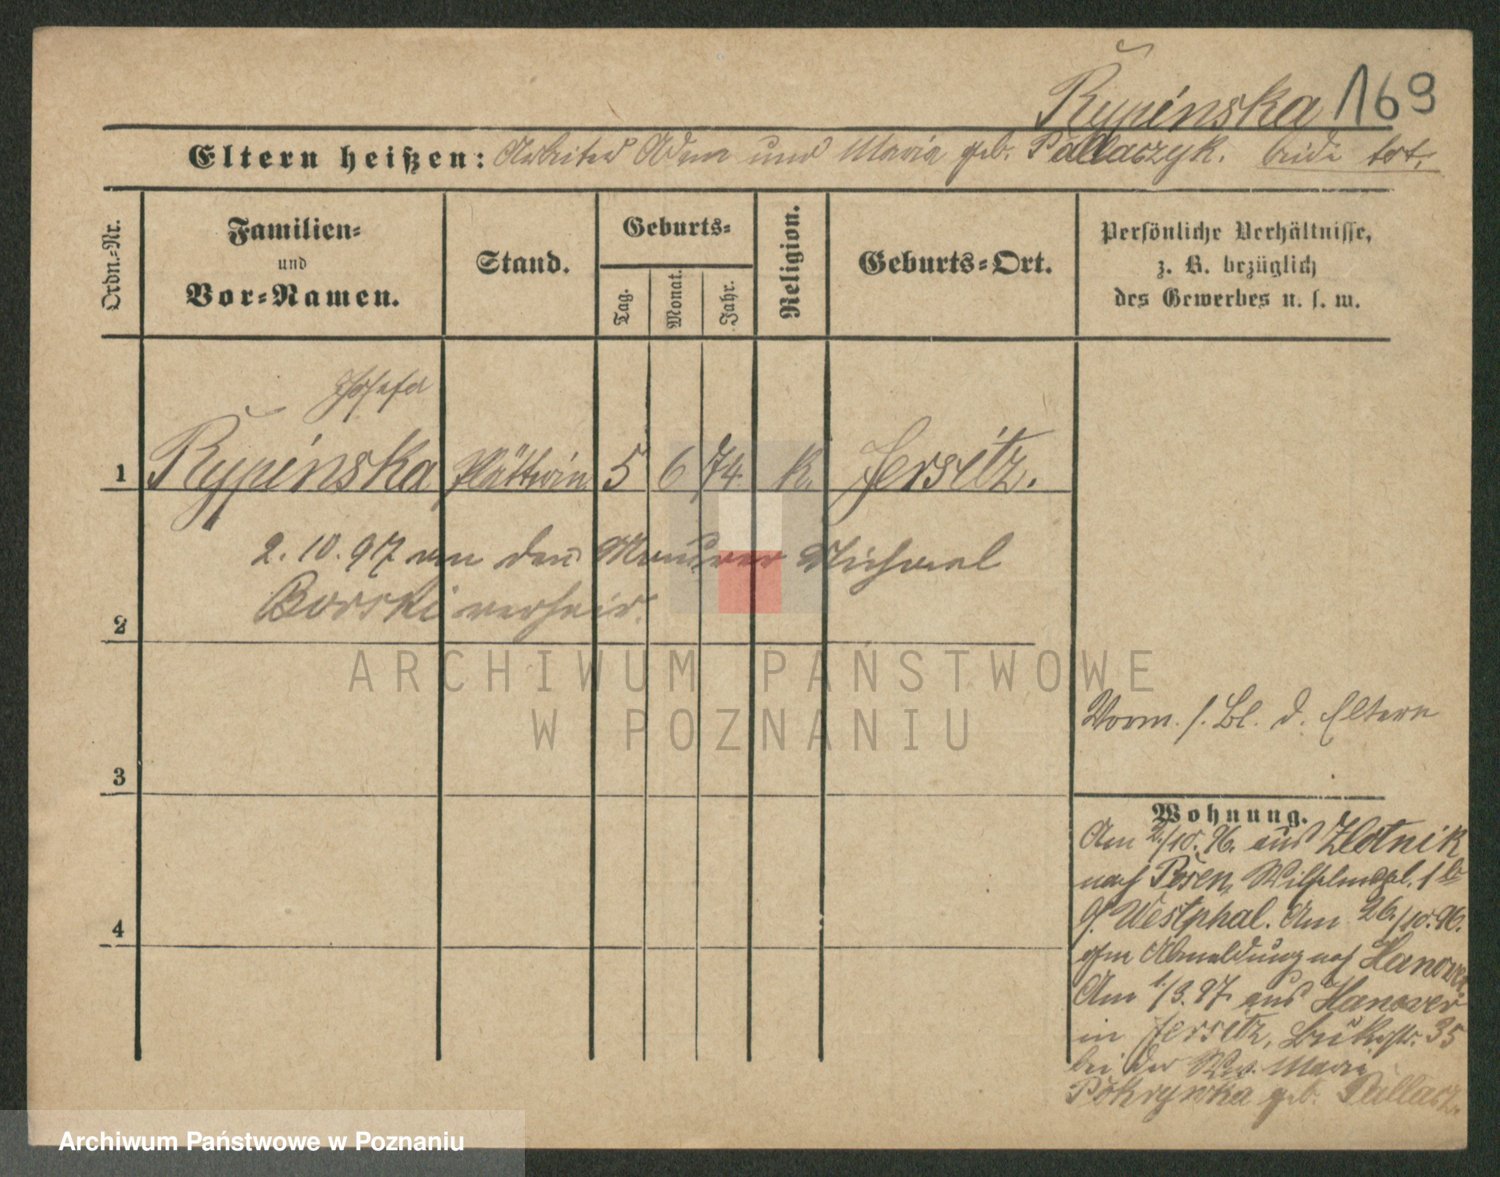 Rypinska 169
Eltern heißen: Arbeiter Adam und Maria geb. Pallaczyk. beide tot.
Ordn.-Nr.
Familien-
und
Vor-Namen.
Stand.
Geburts-
Tag.
Monat.
Jahr.
Religion.
Geburts-Ort.
Persönliche Verhältnisse,
z. B. bezüglich
des Gewerbes u. s. w.
Josefa
1 Rypinska Plätterin 5 6 74. K. Jersitz.
2. 10. 97 an den Maurer Michael
2 Borski verheir.
ARCHIWUM PAŃSTWOWE
W POZNANIU
Vorm. s. Bl. d. Eltern
3
Wohnung.
Am 2/10. 96. aus Zlotnik
nach Posen, Wilhelmspl. 1
Westphal. Am 26./10. 96.
Abmeldung nach Hanover
4
Am 1/3. 97. aus Hanover
in Jersitz, Bukerstr. 35
bei der Ww. Maria
Pokrywka geb. Pallacz.
Archiwum Państwowe w Poznaniu